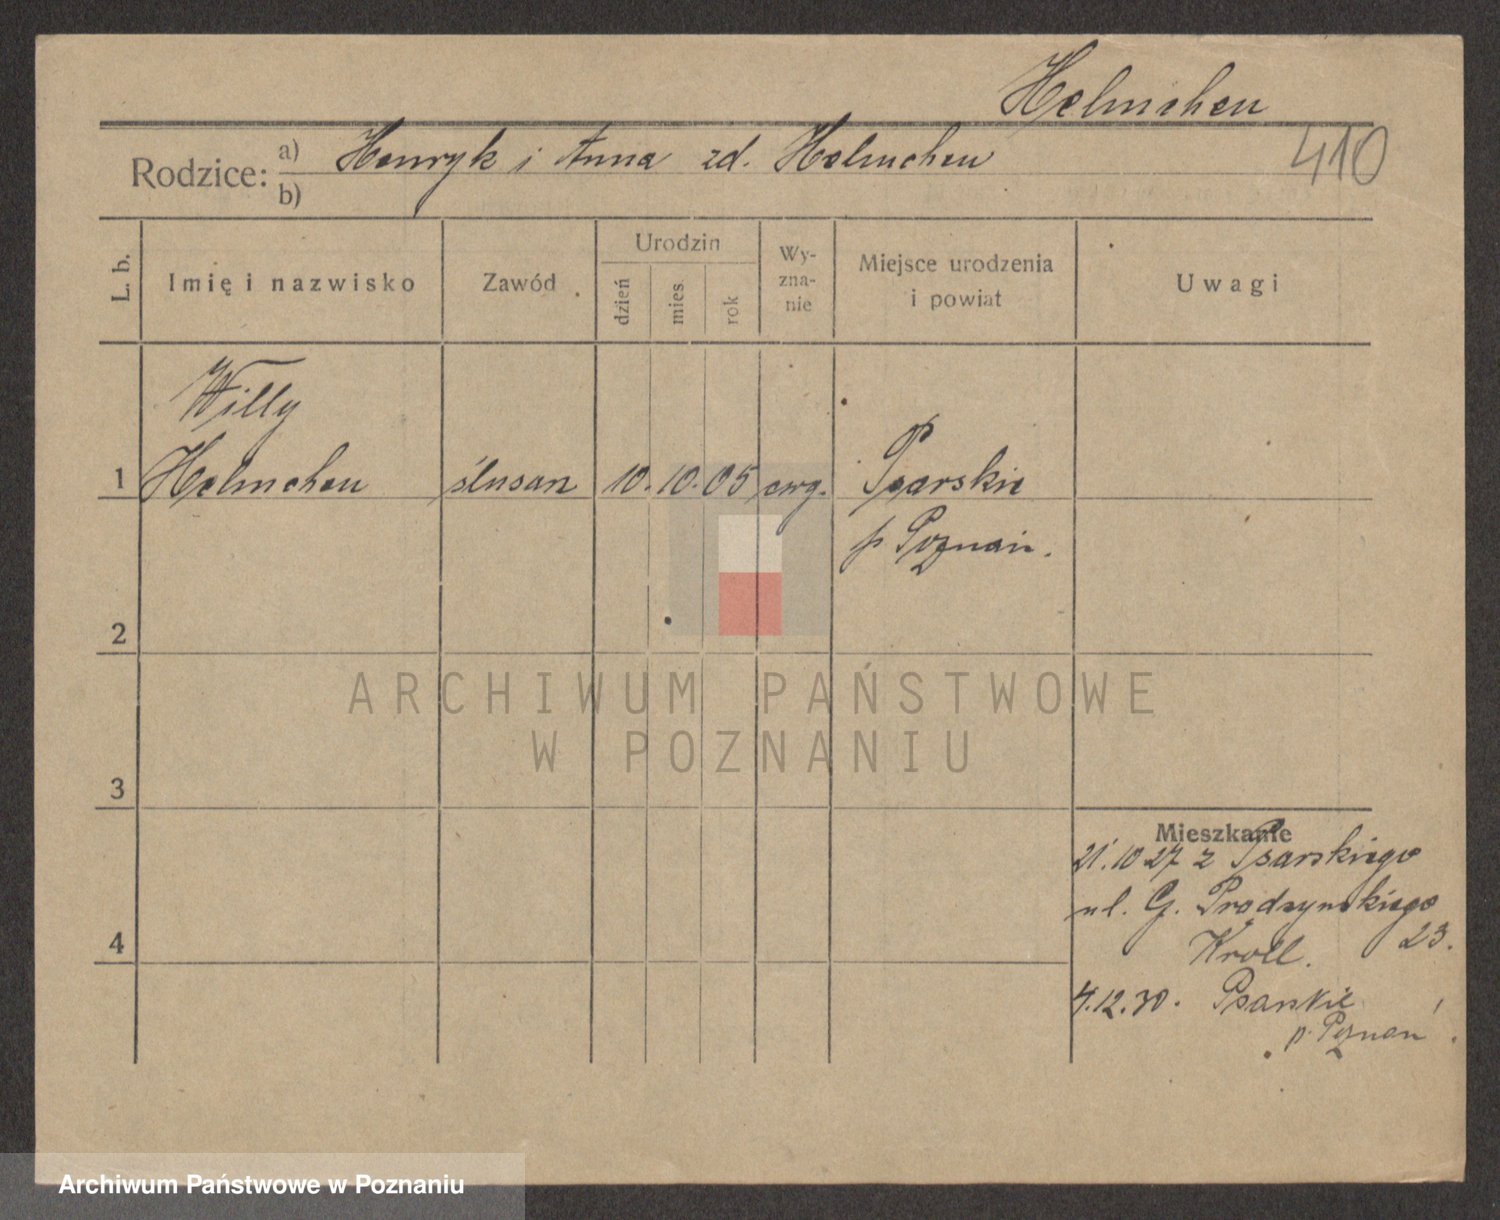 Helmchen
410
Rodzice: a) Henryk i Anna zd. Helmchen
b)
L. b. Imię i nazwisko Zawód Urodzin dzień mies. rok Wy-zna-nie Miejsce urodzenia i powiat Uwagi
Willy
1 Helmchen ślusarz 10. 10. 05 ewg. Psarskie
p Poznań.
2
ARCHIWUM PAŃSTWOWE
W POZNANIU
3
Mieszkanie
21.10 27 z Psarskiego
ul. G. Prądzyńskiego
23.
4
Kroll.
4.12.30. Psarskie
p. Poznań
Archiwum Państwowe w Poznaniu